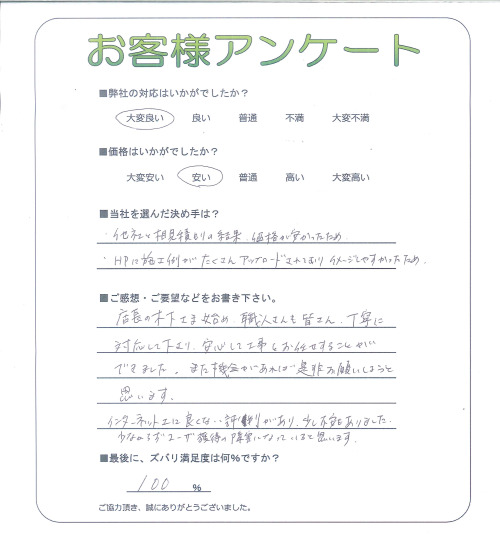 お客様アンケート
■弊社の対応はいかがでしたか？
大変良い 良い 普通 不満 大変不満
■価格はいかがでしたか？
大変安い 安い 普通 高い 大変高い
■当社を選んだ決め手は？
・他社と相見積もりの結果、価格が安かったため
・HPに施工例がたくさんアップロードされておりイメージしやすかったため。
■ご感想・ご要望などをお書き下さい。
店長の木下さま始め、職人さんも皆さん、丁寧に
対応して下さり、安心して工事をお任せすることが
できました。また機会があれば是非お願いしようと
思います。
インターネット上に良くない評判があり、少し不安もありました。
少なからずユーザ獲得の障害になっていると思います。
■最後に、ズバリ満足度は何%ですか？
100 %
ご協力頂き、誠にありがとうございました。